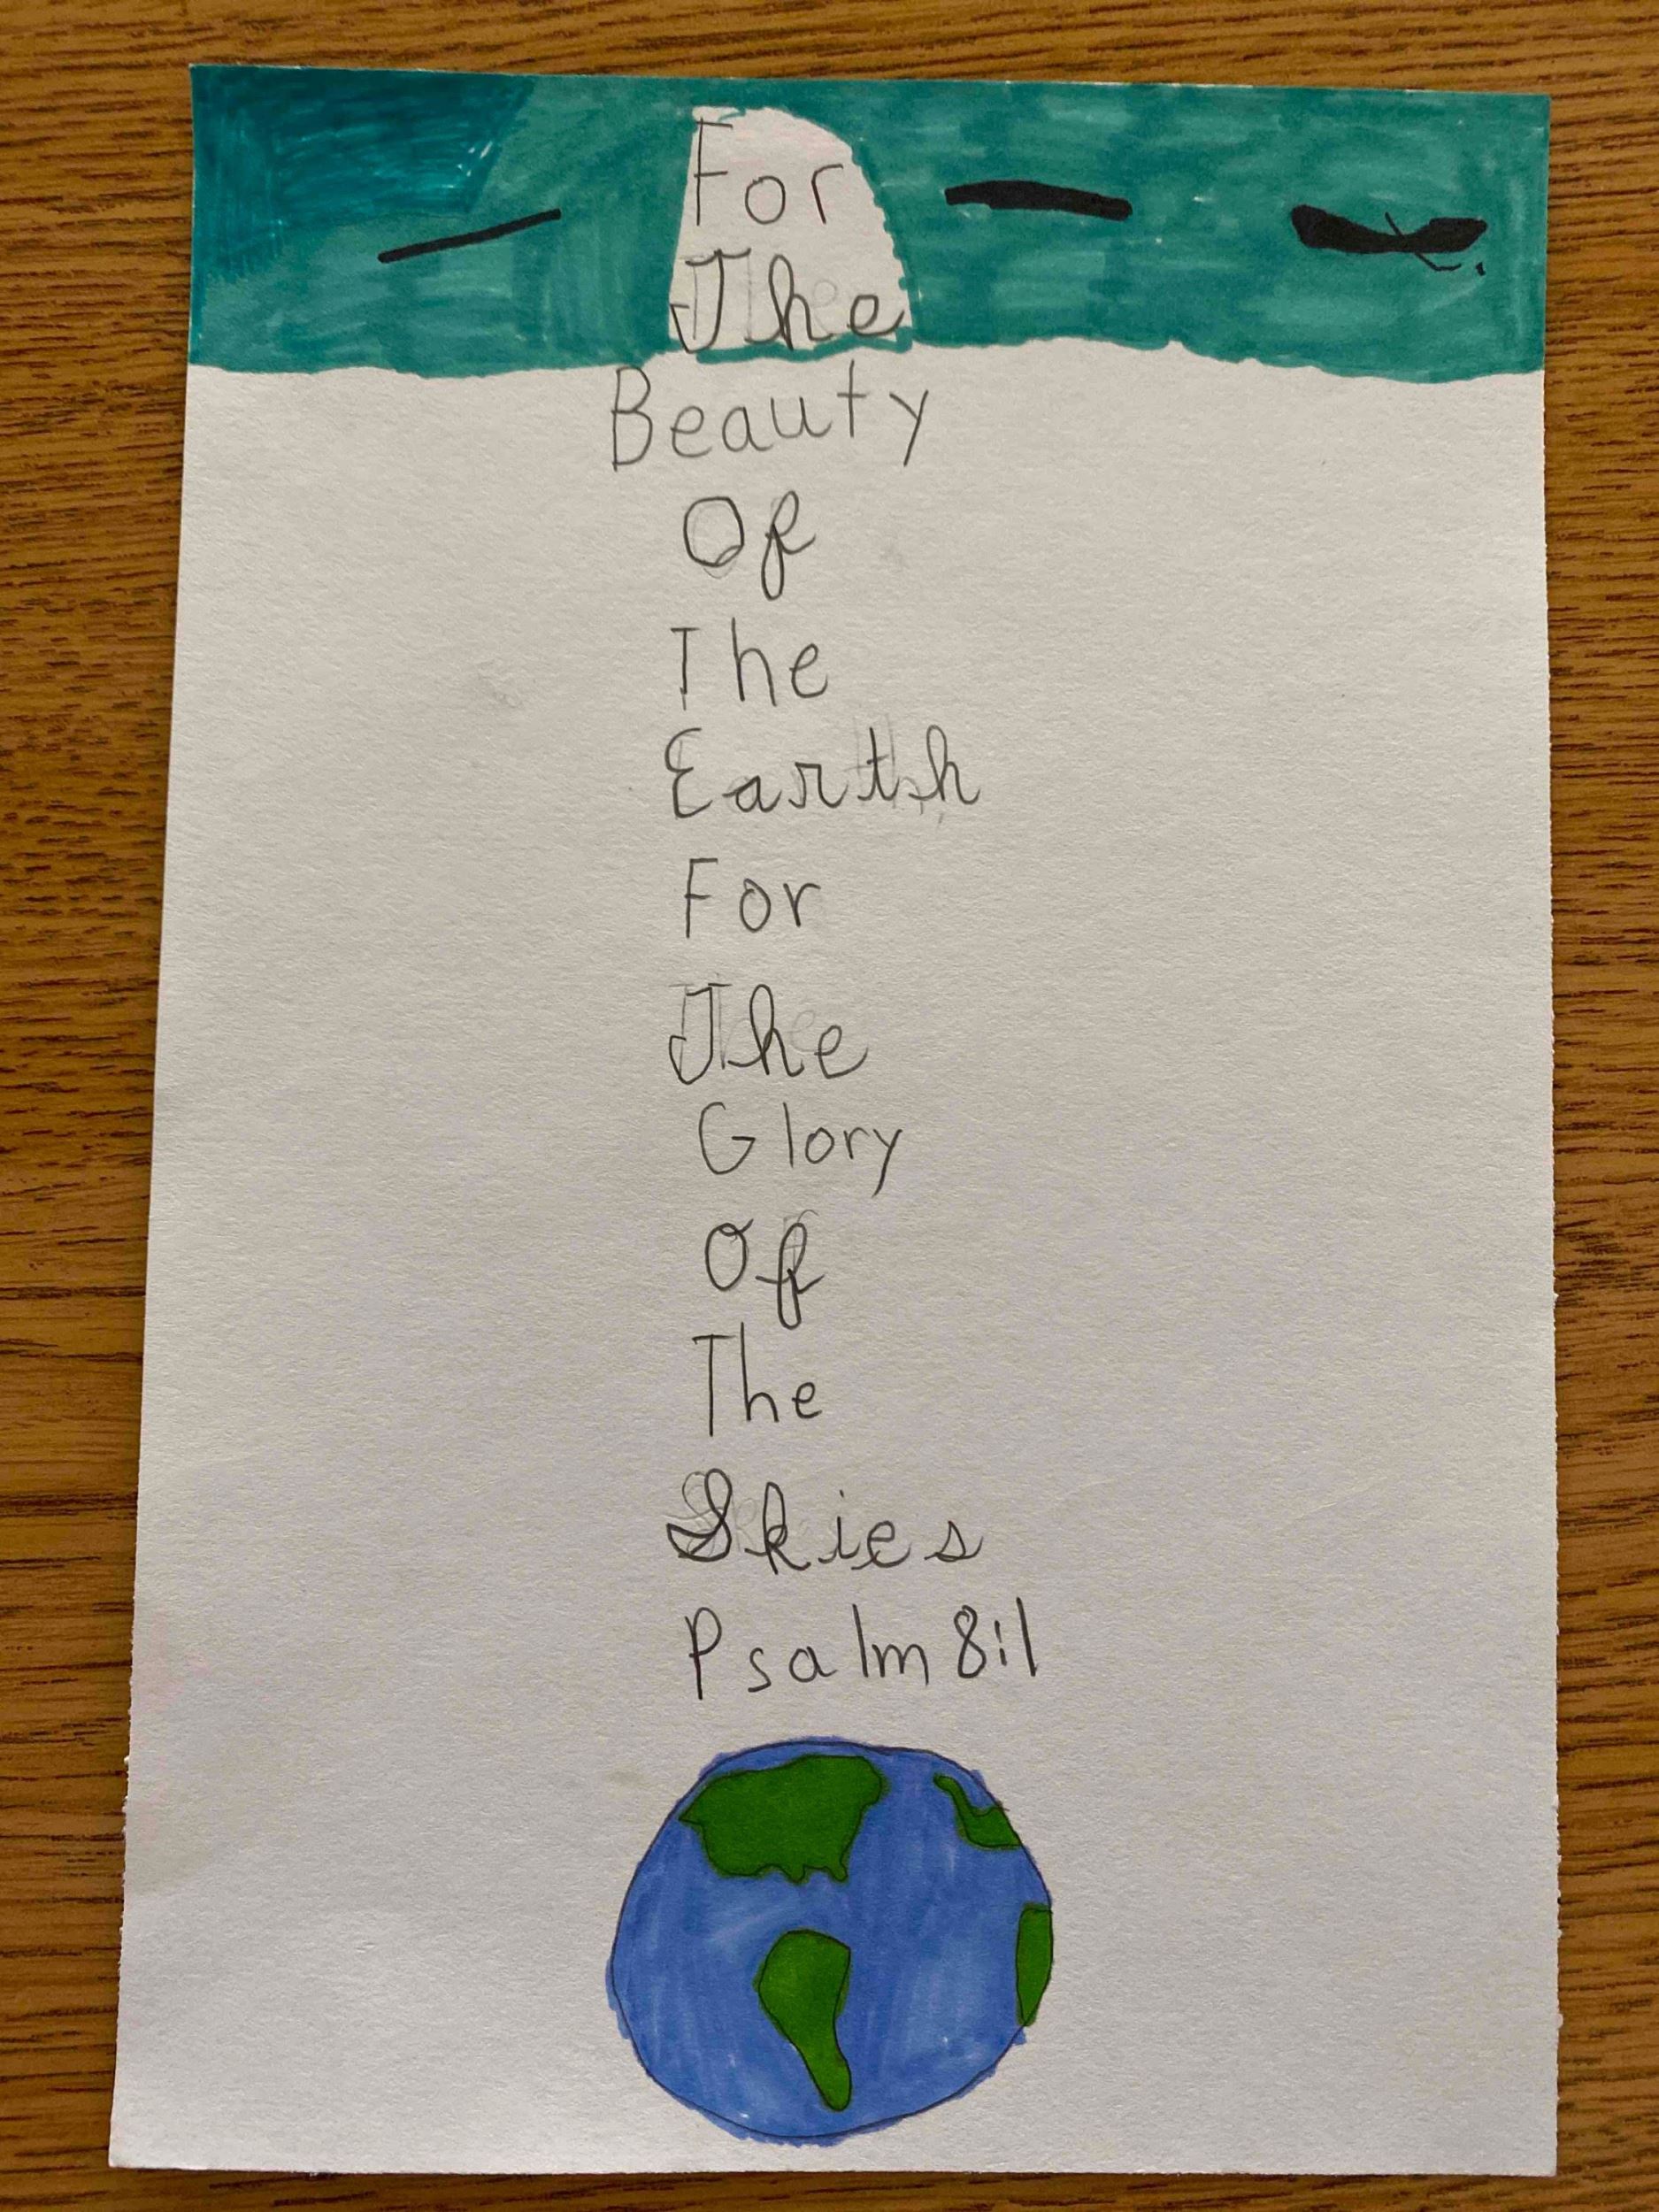 For
The
Beauty
Of
The
Earth
For
The
Glory
Of
The
Skies
Psalm 8:1